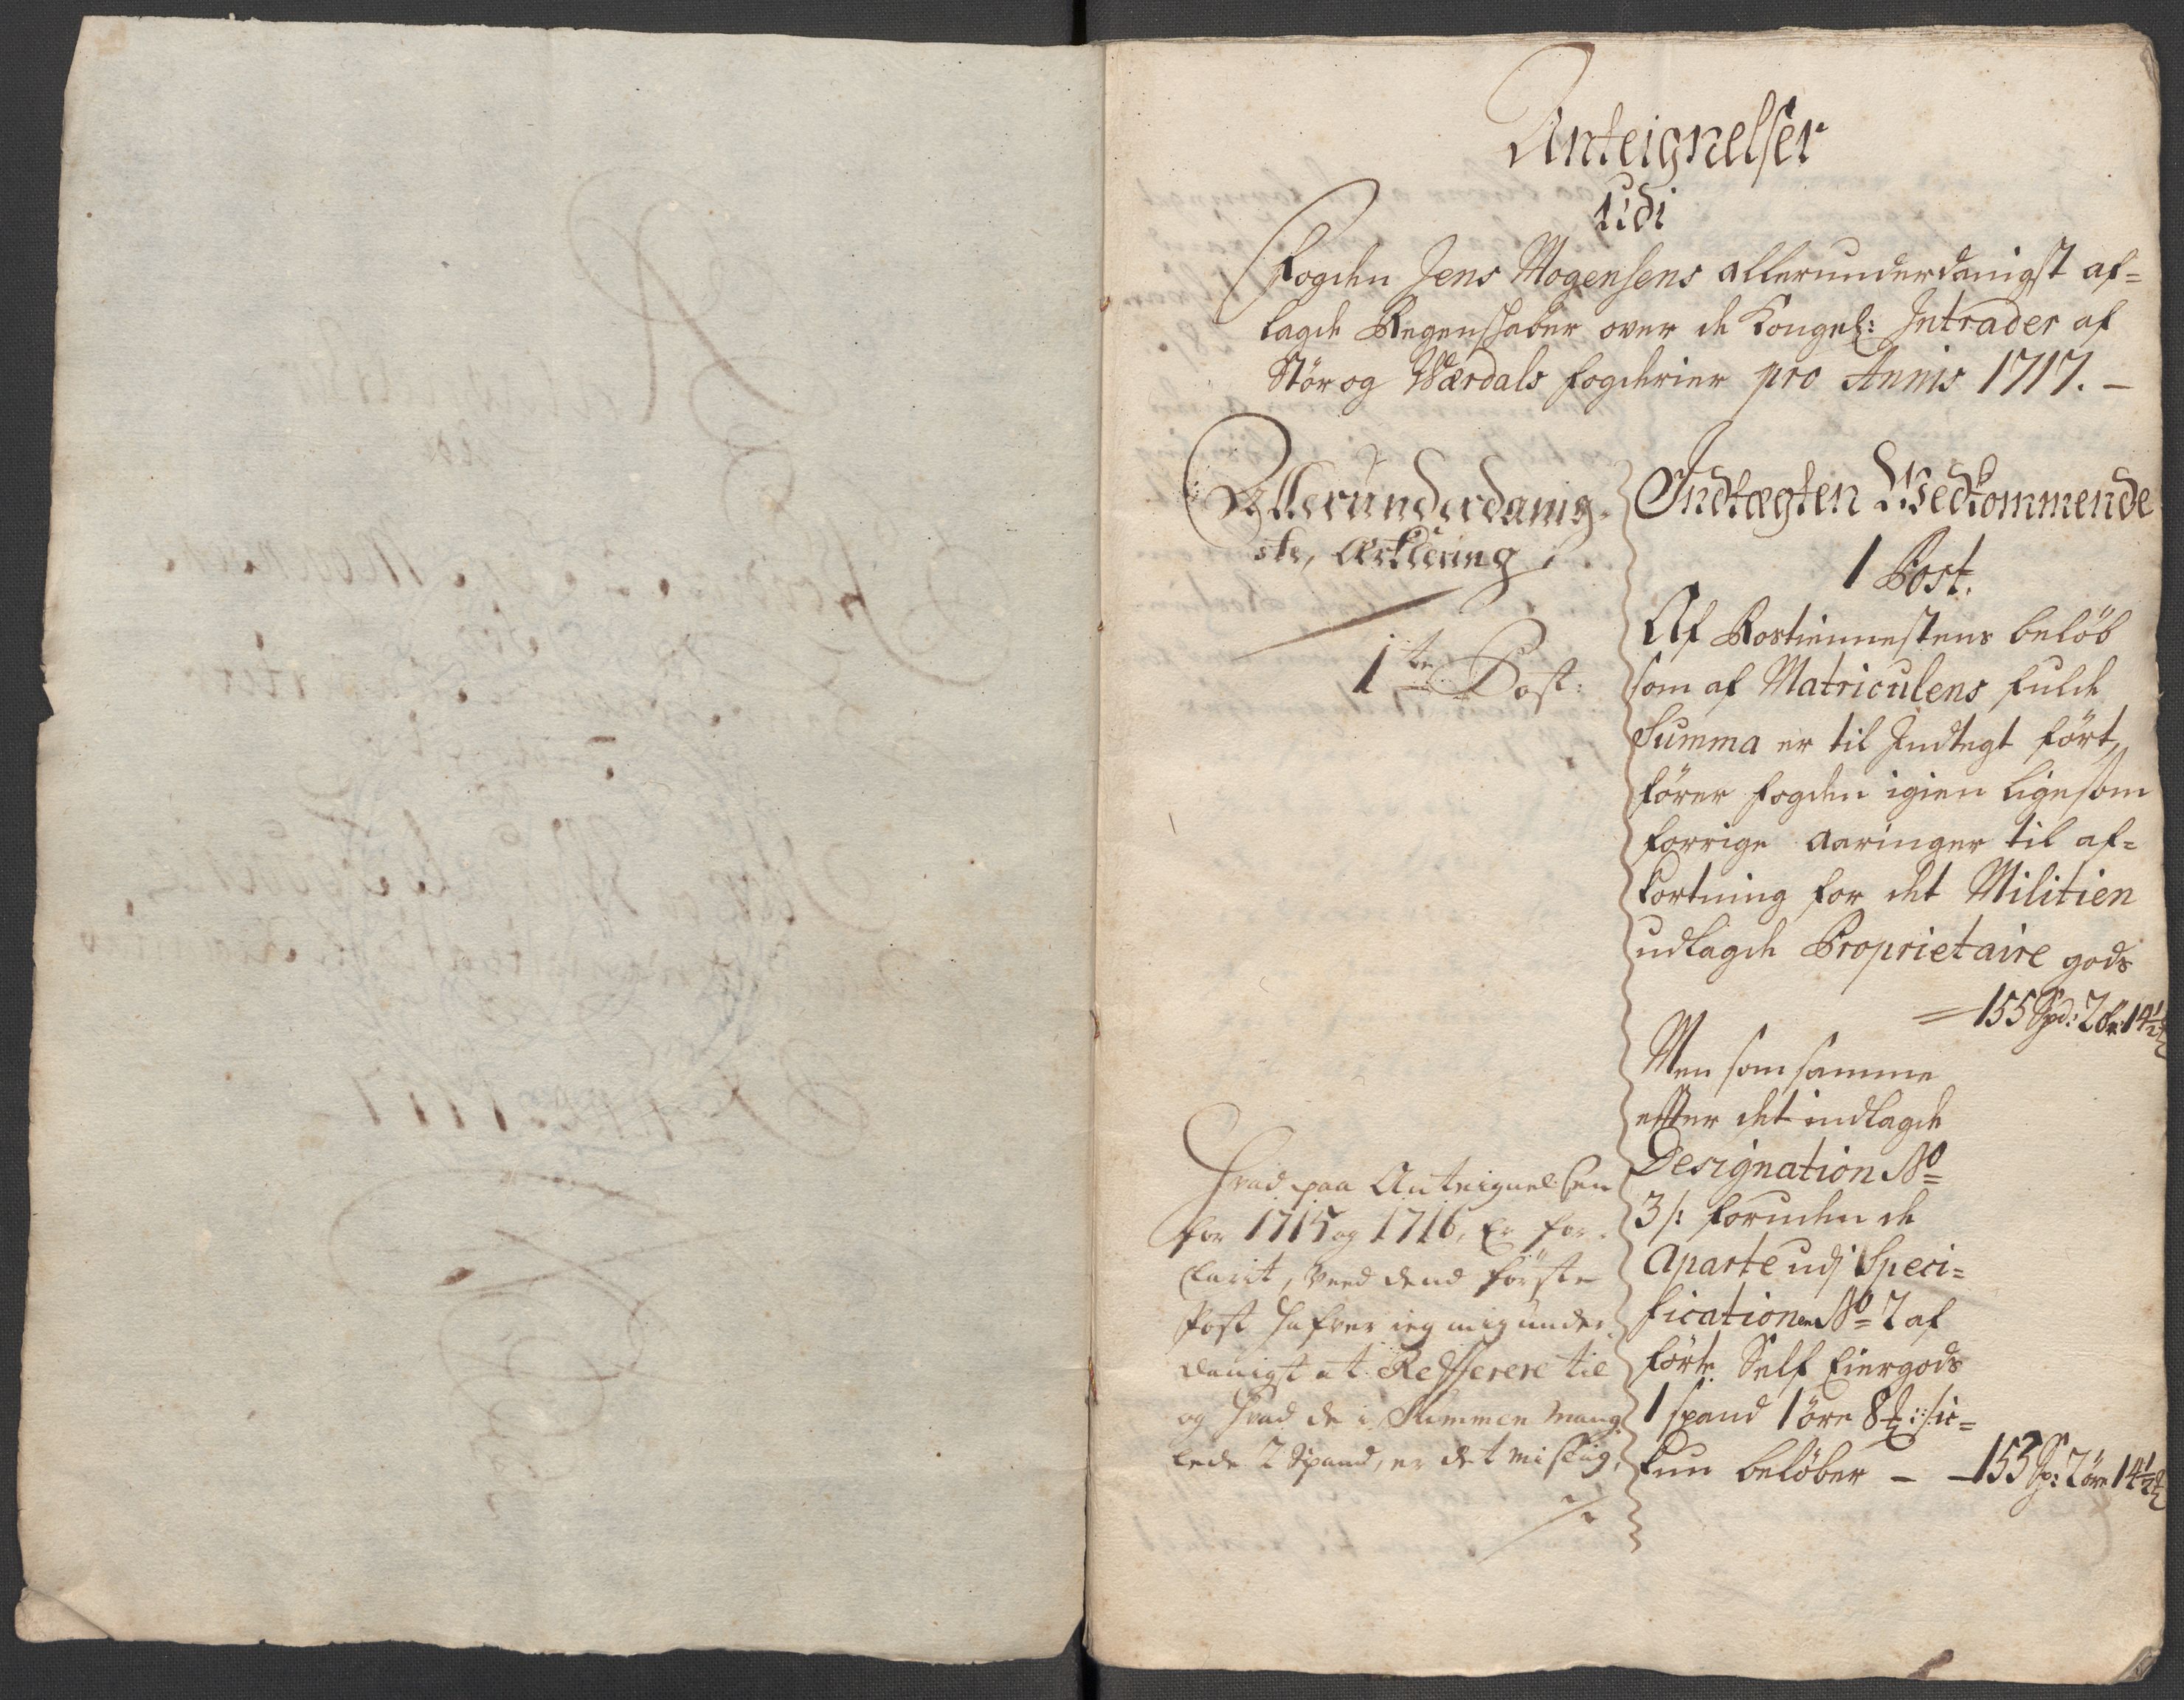 Anteignelser
udi
Fogden Jens Mogensens allerunderdanigst af=
lagde Regenskaber over de Kongel: Intrader af
Stør og Værdals fogderier pro Annis 1717. –
Allerunderdanig-
ste, Erklering
1te Post:
Hvad paa Anteignelsen
for 1715 og 1716, Er for-
klarit, Veed dend første
Post hafver ieg mig under-
danigst at Refferere til
og hvad de i Summen mang-
lede 2 Spand, er det
Indtægten Vedkommende
1 Post.
Af Rostiennestens beløb
som af Matriculens fulde
Summa er til Indtegt ført,
fører fogden igien ligesom
forrige aaringer til af=
kortning for det Militien
udlagde Proprietaire gods
155 Spd: 2 ør: 14½
Men som samme
effter det indlagde
Designation No
3 /: foruden de
aparte udj Speci=
ficationen No 2 af
førte Self Eiergods
1 spand 1 øre 8
kun beløber – 153 Sp: 2 øre 14½